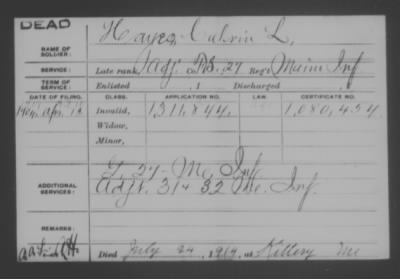 DEAD
NAME OF SOLDIER: Hayes Calvin L.
SERVICE: Late rank, Adj. Co. F.S., 27 Reg't Maine Inf
TERM OF SERVICE: Enlisted , 1 Discharged , 1
DATE OF FILING. CLASS. APPLICATION NO. LAW. CERTIFICATE NO.
1904, Apr. 18 Invalid, 1,311,844, 1,080,454
Widow,
Minor,
G. 27 Me. Inf
ADDITIONAL SERVICES: Adjt. 31 & 32 Me. Inf.
REMARKS:
Died July 24, 1914, at Kittery Me